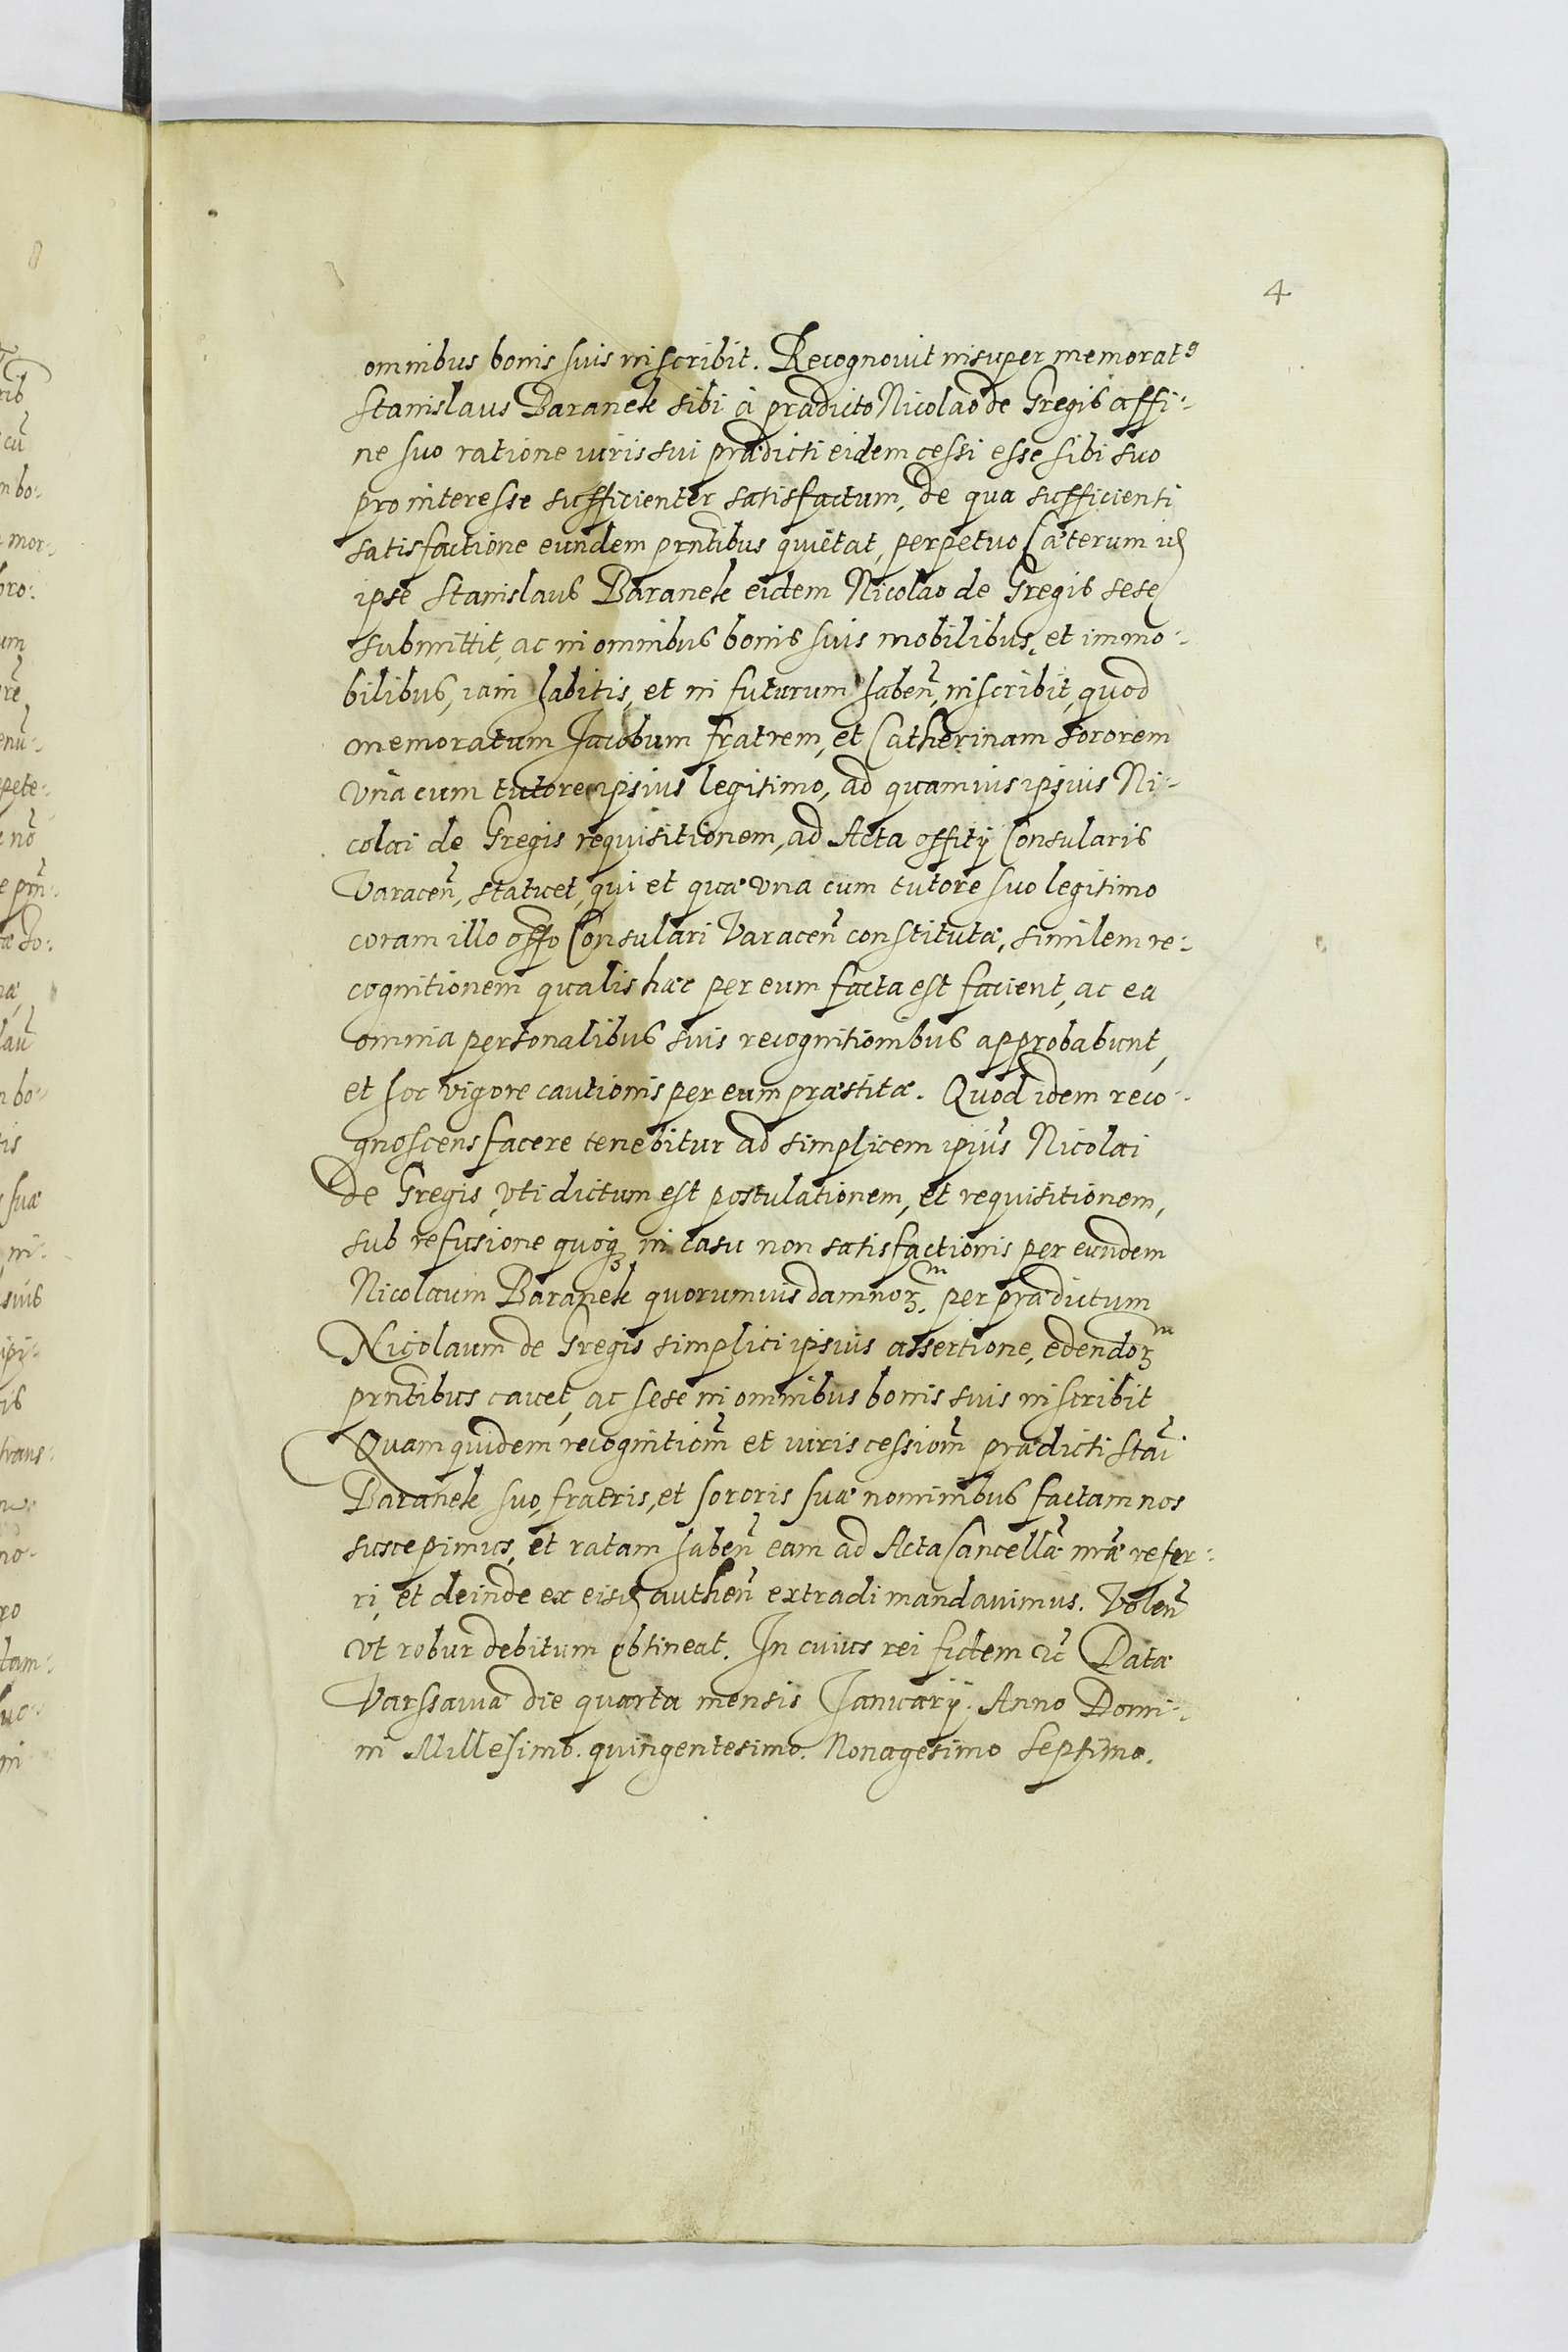 4
omnibus bonis suis inscribit. Recognouit insuper memoratꝰ
Stanislaus Baranek sibi à prædicto Nicolao de Gregis affi:
ne suo ratione iuris sui prædicti eidem cessi esse sibi suo
pro interesse sufficienter satisfactum, de qua sufficienti
satisfactione eundem prñtibus quietat, perpetuo Cæterum
ipse Stanislaus Baranek eidem Nicolao de Gregis sese
submittit, ac in omnibus bonis suis mobilibus, et immo:
bilibus, iam habitis, et in futurum habeñ, inscribit, quod
memoratum Jacobum fratrem, et Catherinam sororem
vnà cum tutore ipsius legitimo, ad quamuis ipsius Ni:
colai de Gregis requisitionem, ad Acta offitÿ Consularis
Varaceñ, statuet, qui et quæ vna cum tutore suo legitimo
coram illo offo Consulari Varaceñ constitutæ, similem re:
cognitionem qualis hæc per eum facta est facient, ac ea
omnia personalibus suis recognitionibus approbabunt,
et hoc vigore cautionis per eum præstitæ. Quod idem reco:
gnoscens facere tenebitur ad simplicem ipius Nicolai
de Gregis, vti dictum est postulationem, et requisitionem,
sub refusione quoqꝫ in casu non satisfactionis per eundem
Nicolaum Baranek quorumuis damnoꝝm, per prædictum
Nicolaum de Gregis simplici ipsius assertione, edendoꝝm
prñtibus cauet, ac sese in omnibus bonis suis inscribit
Quam quidem recognitioñm et iuris cessioñm prædicti Stãi
Baranek suo, fratris, et sororis suæ nominibus factam nos
suscepimus, et ratam habeñ eam ad Acta Cancellæ nræ refer:
ri, et deinde ex eisd autheñ extradi mandauimus. Voleñ
vt robur debitum obtineat. In cuius rei fidem ꝛc̃ Datæ
Varssauiæ die quarta mensis Januarÿ. Anno Domi:
ni Millesimo. quingentesimo. Nonagesimo Septimo.